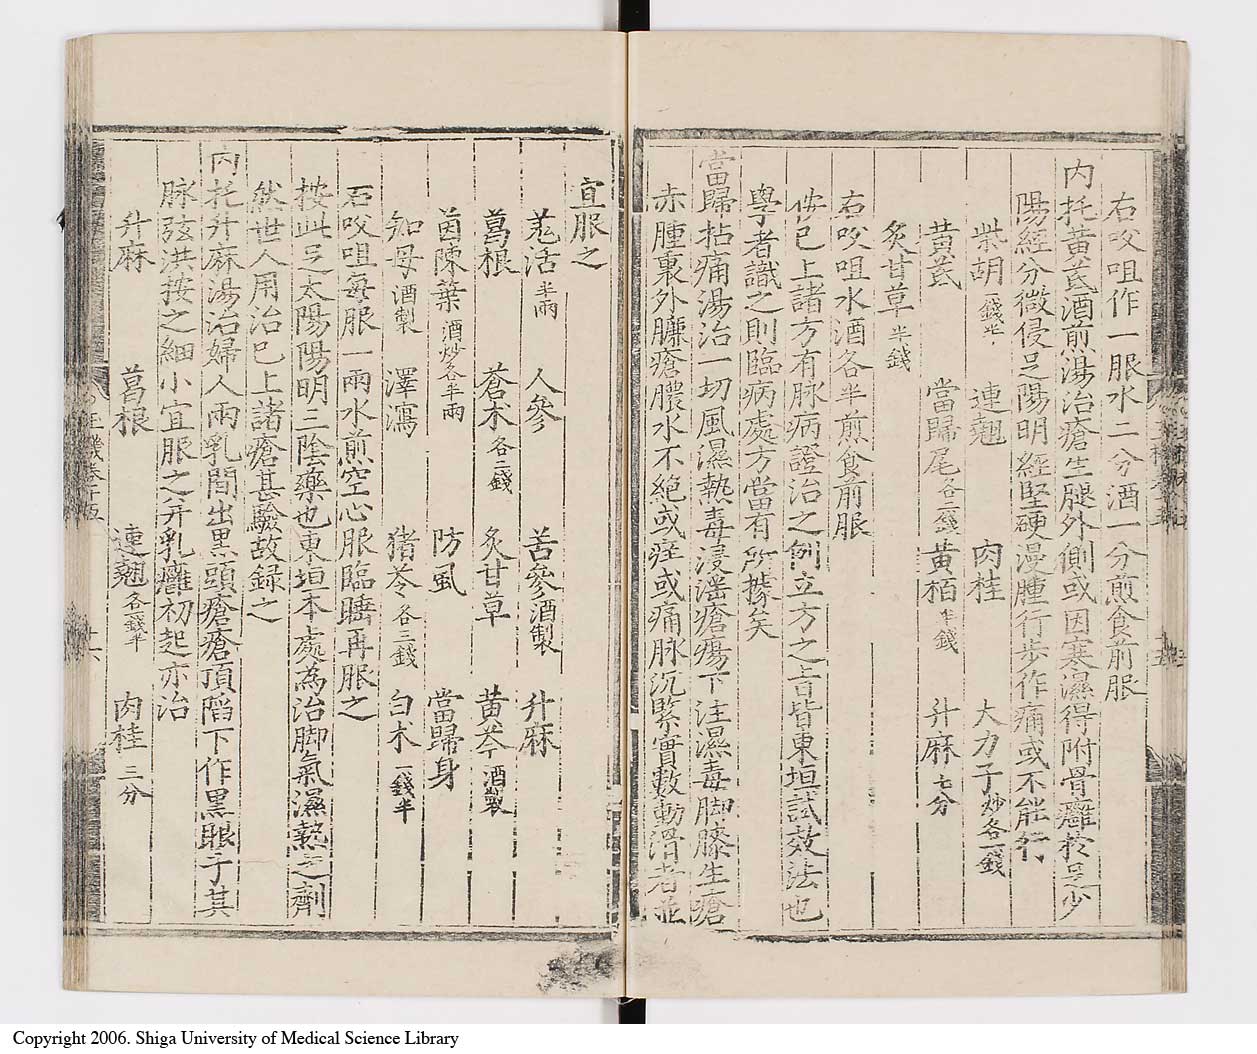 右㕮咀作一服水二分酒一分煎食前服
内托黃芪酒煎湯治瘡生腿外側或因寒濕得附骨癰於足少
陽經分微侵足陽明經堅硬漫腫行步作痛或不能行
柴胡錢半 連翹 肉桂 大力子炒各一錢
黃芪 當歸尾各二錢 黃栢半錢 升麻七分
炙甘草半錢
右㕮咀水酒各半煎食前服
按已上諸方有脉病證治之例立方之旨皆東垣試效法也
學者識之則臨病處方當有所據矣
當歸拈痛湯治一切風濕熱毒浸滛瘡瘍下注濕毒脚膝生瘡
赤腫裏外臁瘡膿水不絕或痒或痛脉沉緊實數動滑者並
宜服之
羌活半兩 人參 苦參酒製 升麻
葛根 蒼朮各二錢 炙甘草 黃芩酒製
茵陳葉酒炒各半兩 防風 當歸身
知母酒製 澤瀉 猪苓各三錢 白朮一錢半
右㕮咀每服一兩水煎空心服臨睡再服之
按此足太陽陽明三陰藥也東垣本處為治脚氣濕熱之劑
然世人用治已上諸瘡甚驗故録之
内托升麻湯治婦人兩乳間出黑頭瘡瘡頂䧟下作黑眼子其
脉弦洪按之細小宜服之并乳癰初起亦治
升麻 葛根 連翹各一錢半 肉桂三分